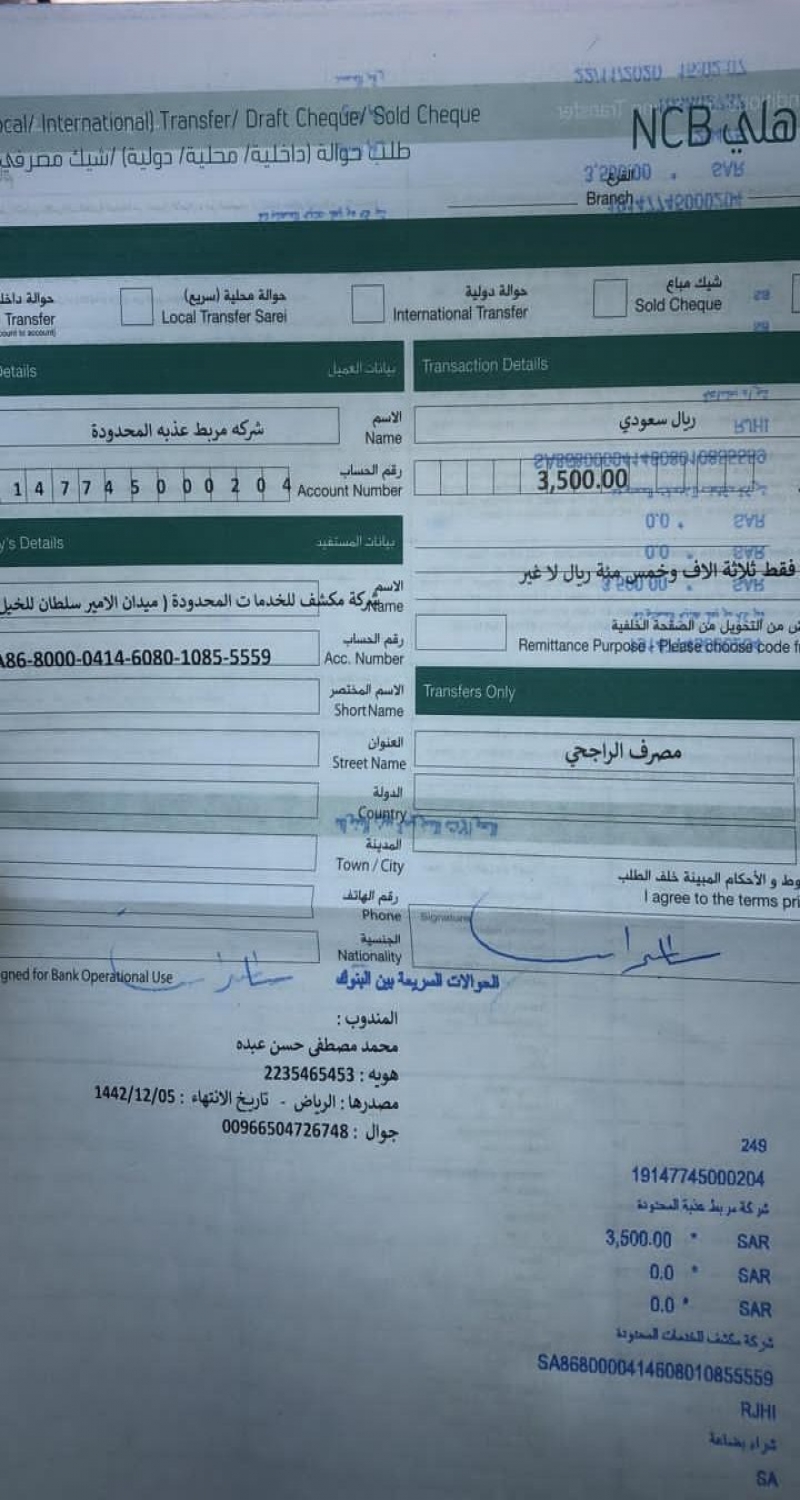 ocal/ International) Transfer/ Draft Cheque/ Sold Cheque
طلب حوالة (داخلية/ محلية/ دولية) /شيك مصرفي
NCB
الفرع
Branch
حوالة
Transfer
حوالة محلية (سريع)
Local Transfer Sarei
حوالة دولية
International Transfer
شيك مباع
Sold Cheque
Details
بيانات العميل
Transaction Details
شركه مربط عذبه المحدودة
الاسم
Name
ريال سعودي
1 4 7 7 4 5 0 0 0 2 0 4
رقم الحساب
Account Number
3,500.00
y's Details
بيانات المستفيد
فقط ثلاثة الاف وخمس مئة ريال لا غير
كة مكشف للخدمات المحدودة ( ميدان الامير سلطان للخيل
الاسم
Name
A86-8000-0414-6080-1085-5559
رقم الحساب
Acc. Number
من التحويل من الصفحة الخلفية
Remittance Purpose - Please choose code fr
الاسم المختصر
Short Name
Transfers Only
العنوان
Street Name
مصرف الراجحي
الدولة
Country
المدينة
Town / City
وط و الأحكام المبينة خلف الطلب
I agree to the terms pri
رقم الهاتف
Phone
Signature
الجنسية
Nationality
gned for Bank Operational Use
الحوالات السريعة بين البنوك
المندوب :
محمد مصطفى حسن عبده
هويه : 2235465453
مصدرها : الرياض - تاريخ الانتهاء : 1442/12/05
جوال : 00966504726748
249
19147745000204
شركة مربط عذبة المحدودة
3,500.00 * SAR
0.0 * SAR
0.0 * SAR
شركة مكشف للخدمات المحدودة
SA8680000414608010855559
RJHI
شراء بضاعة
SA